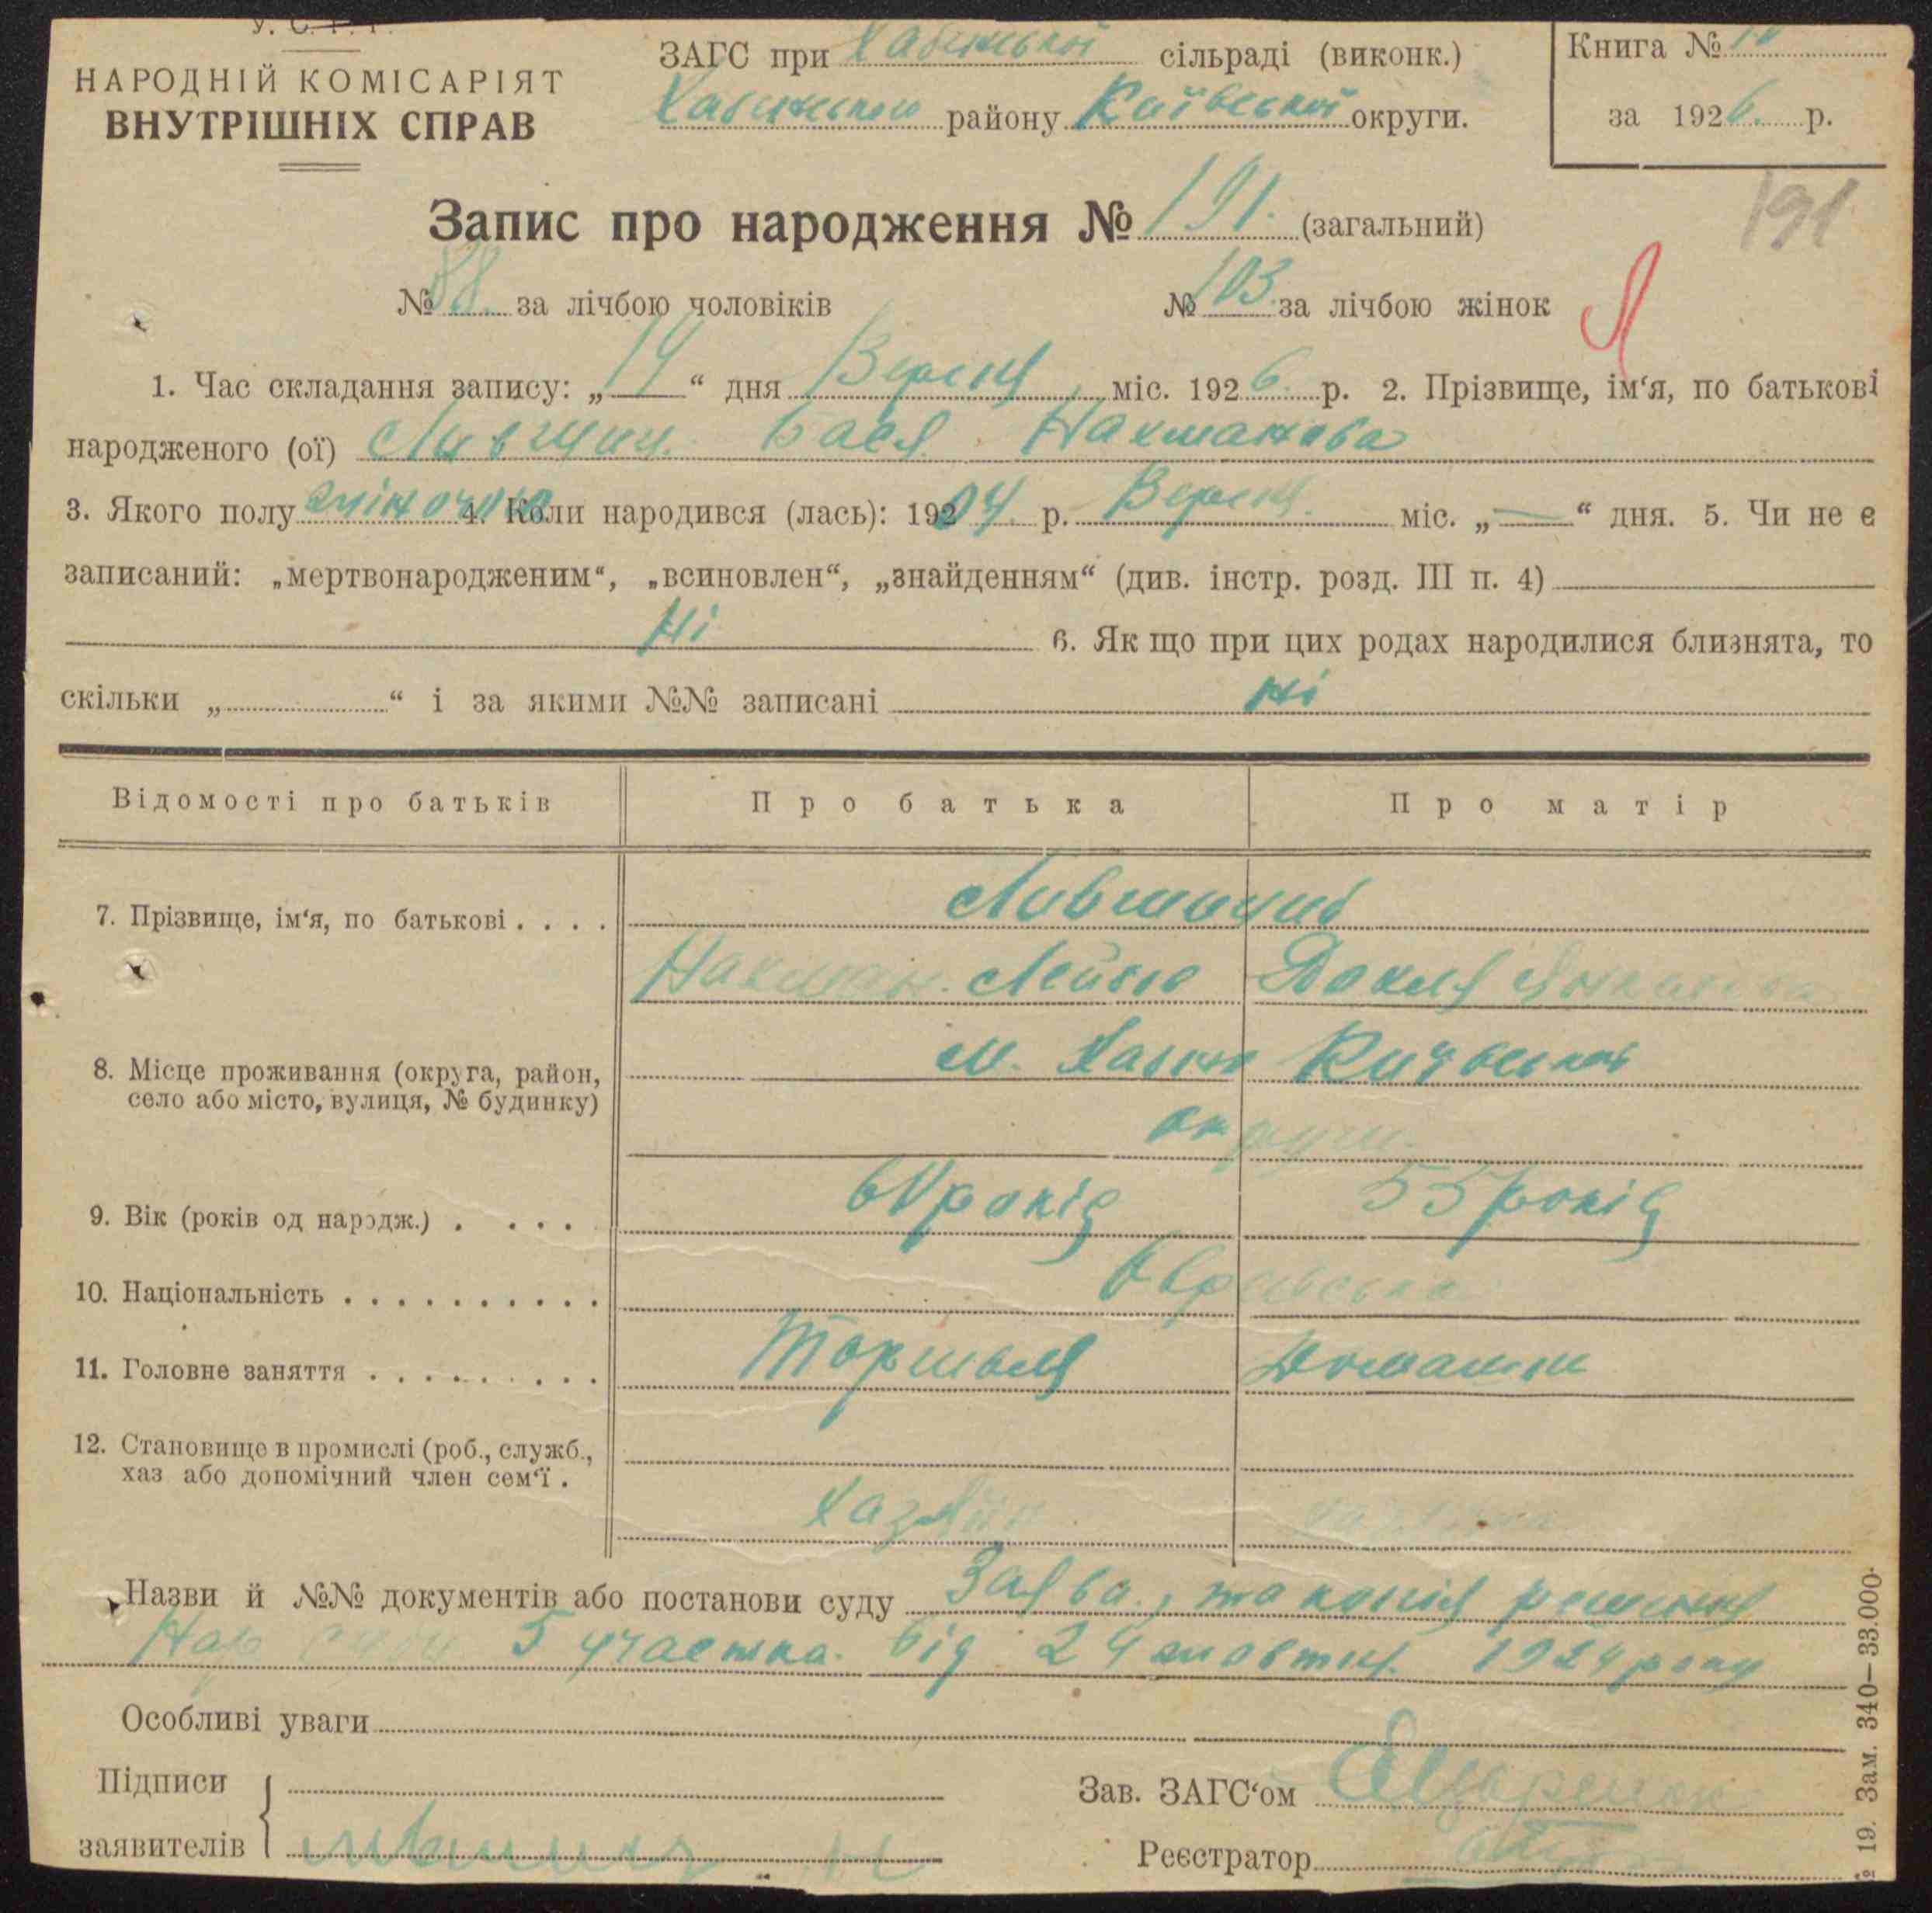 У. С. Р. Р.
НАРОДНІЙ КОМІСАРІЯТ
ВНУТРІШНІХ СПРАВ
ЗАГС при Хабенської сільраді (виконк.)
Хабенського району Київської округи.
Книга №
за 1926. р.
Запис про народження № 191. (загальний)
191
№ 88. за лічбою чоловіків № 103. за лічбою жінок
1. Час складання запису: „14“ дня Вересня міс. 1926. р. 2. Прізвище, ім‘я, по батькові
народженого (ої) Лившиц. Бася Нахманова
3. Якого полу жіночого 4. Коли народився (лась): 1904 р. Вересня міс. „—“ дня. 5. Чи не є
записаний: „мертвонародженим“, „всиновлен“, „знайденням“ (див. інстр. розд. III п. 4)
Ні 6. Як що при цих родах народилися близнята, то
скільки „ “ і за якими №№ записані ні
Відомості про батьків Про батька Про матір
7. Прізвище, ім‘я, по батькові . . . . Лившиць
Нахман. Лейбов
8. Місце проживання (округа, район, м. Хабне Київської
село або місто, вулиця, № будинку)
округи.
9. Вік (років од народж.) . . . . 60 років 55 років
10. Національність . . . . . . . . . . Єврейська
11. Головне заняття . . . . . . . . . Торговля Домашня
12. Становище в промислі (роб., служб.,
хаз або допомічний член сем‘ї .
Хазяїн
Назви й №№ документів або постанови суду Заява, та копія решення
Нар суду 5 участка. від 24 жовтня. 1924 року
Особливі уваги
Підписи
заявителів
Зав. ЗАГС‘ом
Реєстратор
№ 19. Зам. 340—33.000.